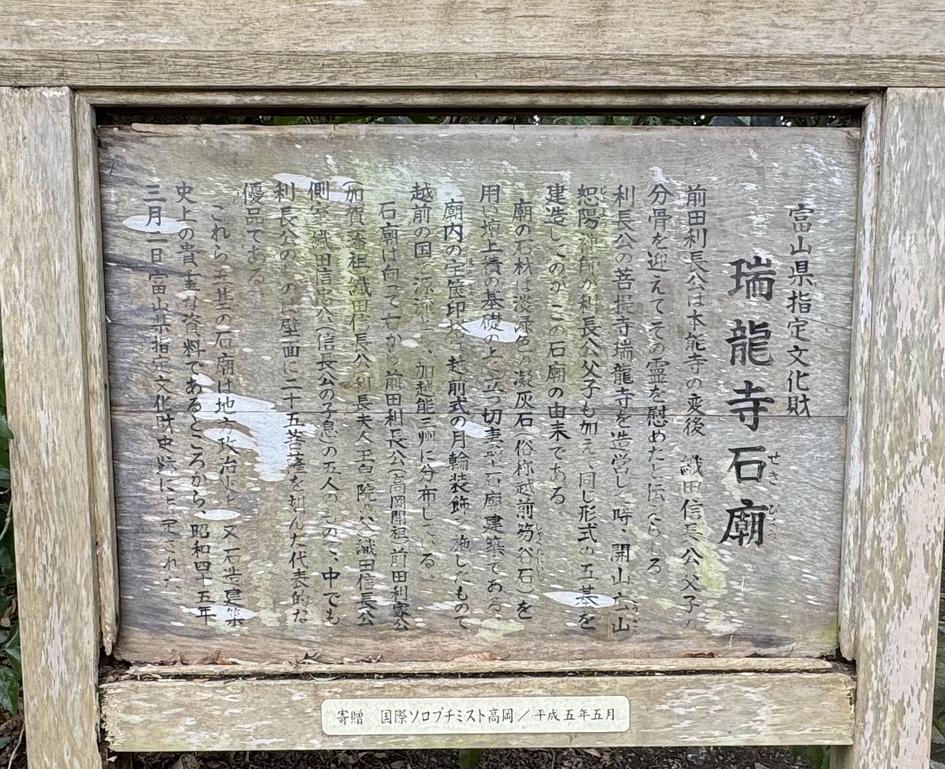 富山県指定文化財
瑞龍寺石廟
せき びょう
前田利長公は本能寺の変後 織田信長公父子の
分骨を迎えてその霊を慰めたと伝えられる
利長公の菩提寺瑞龍寺を造営した時、開山広山
恕陽禅師が利長公父子も加えて同じ形式の五基を
建造したのがこの石廟の由来である
廟の石材は淡緑色の凝灰石(俗称越前笏谷石)を
用い壇上積の基礎の上に立つ切妻型石廟建築である。
廟内の宝篋印塔は越前式の月輪装飾を施したもので
越前の国に源流し、加越能三州に分布している。
石廟は向って右から前田利長公(高岡開祖)前田利家公
加賀藩祖)織田信長公、利長夫人玉泉院の父織田信長公
側室織田信忠公(信長公の子息)の五人のもので、中でも
利長公のものは壁面に二十五菩薩を刻んだ代表的な
優品である
これら五基の石廟は地方政治史上 又石造建築
史上の貴重な資料であるところから、昭和四十五年
三月二日富山県指定文化財史跡に指定された
寄贈 国際ソロプチミスト高岡/平成五年五月